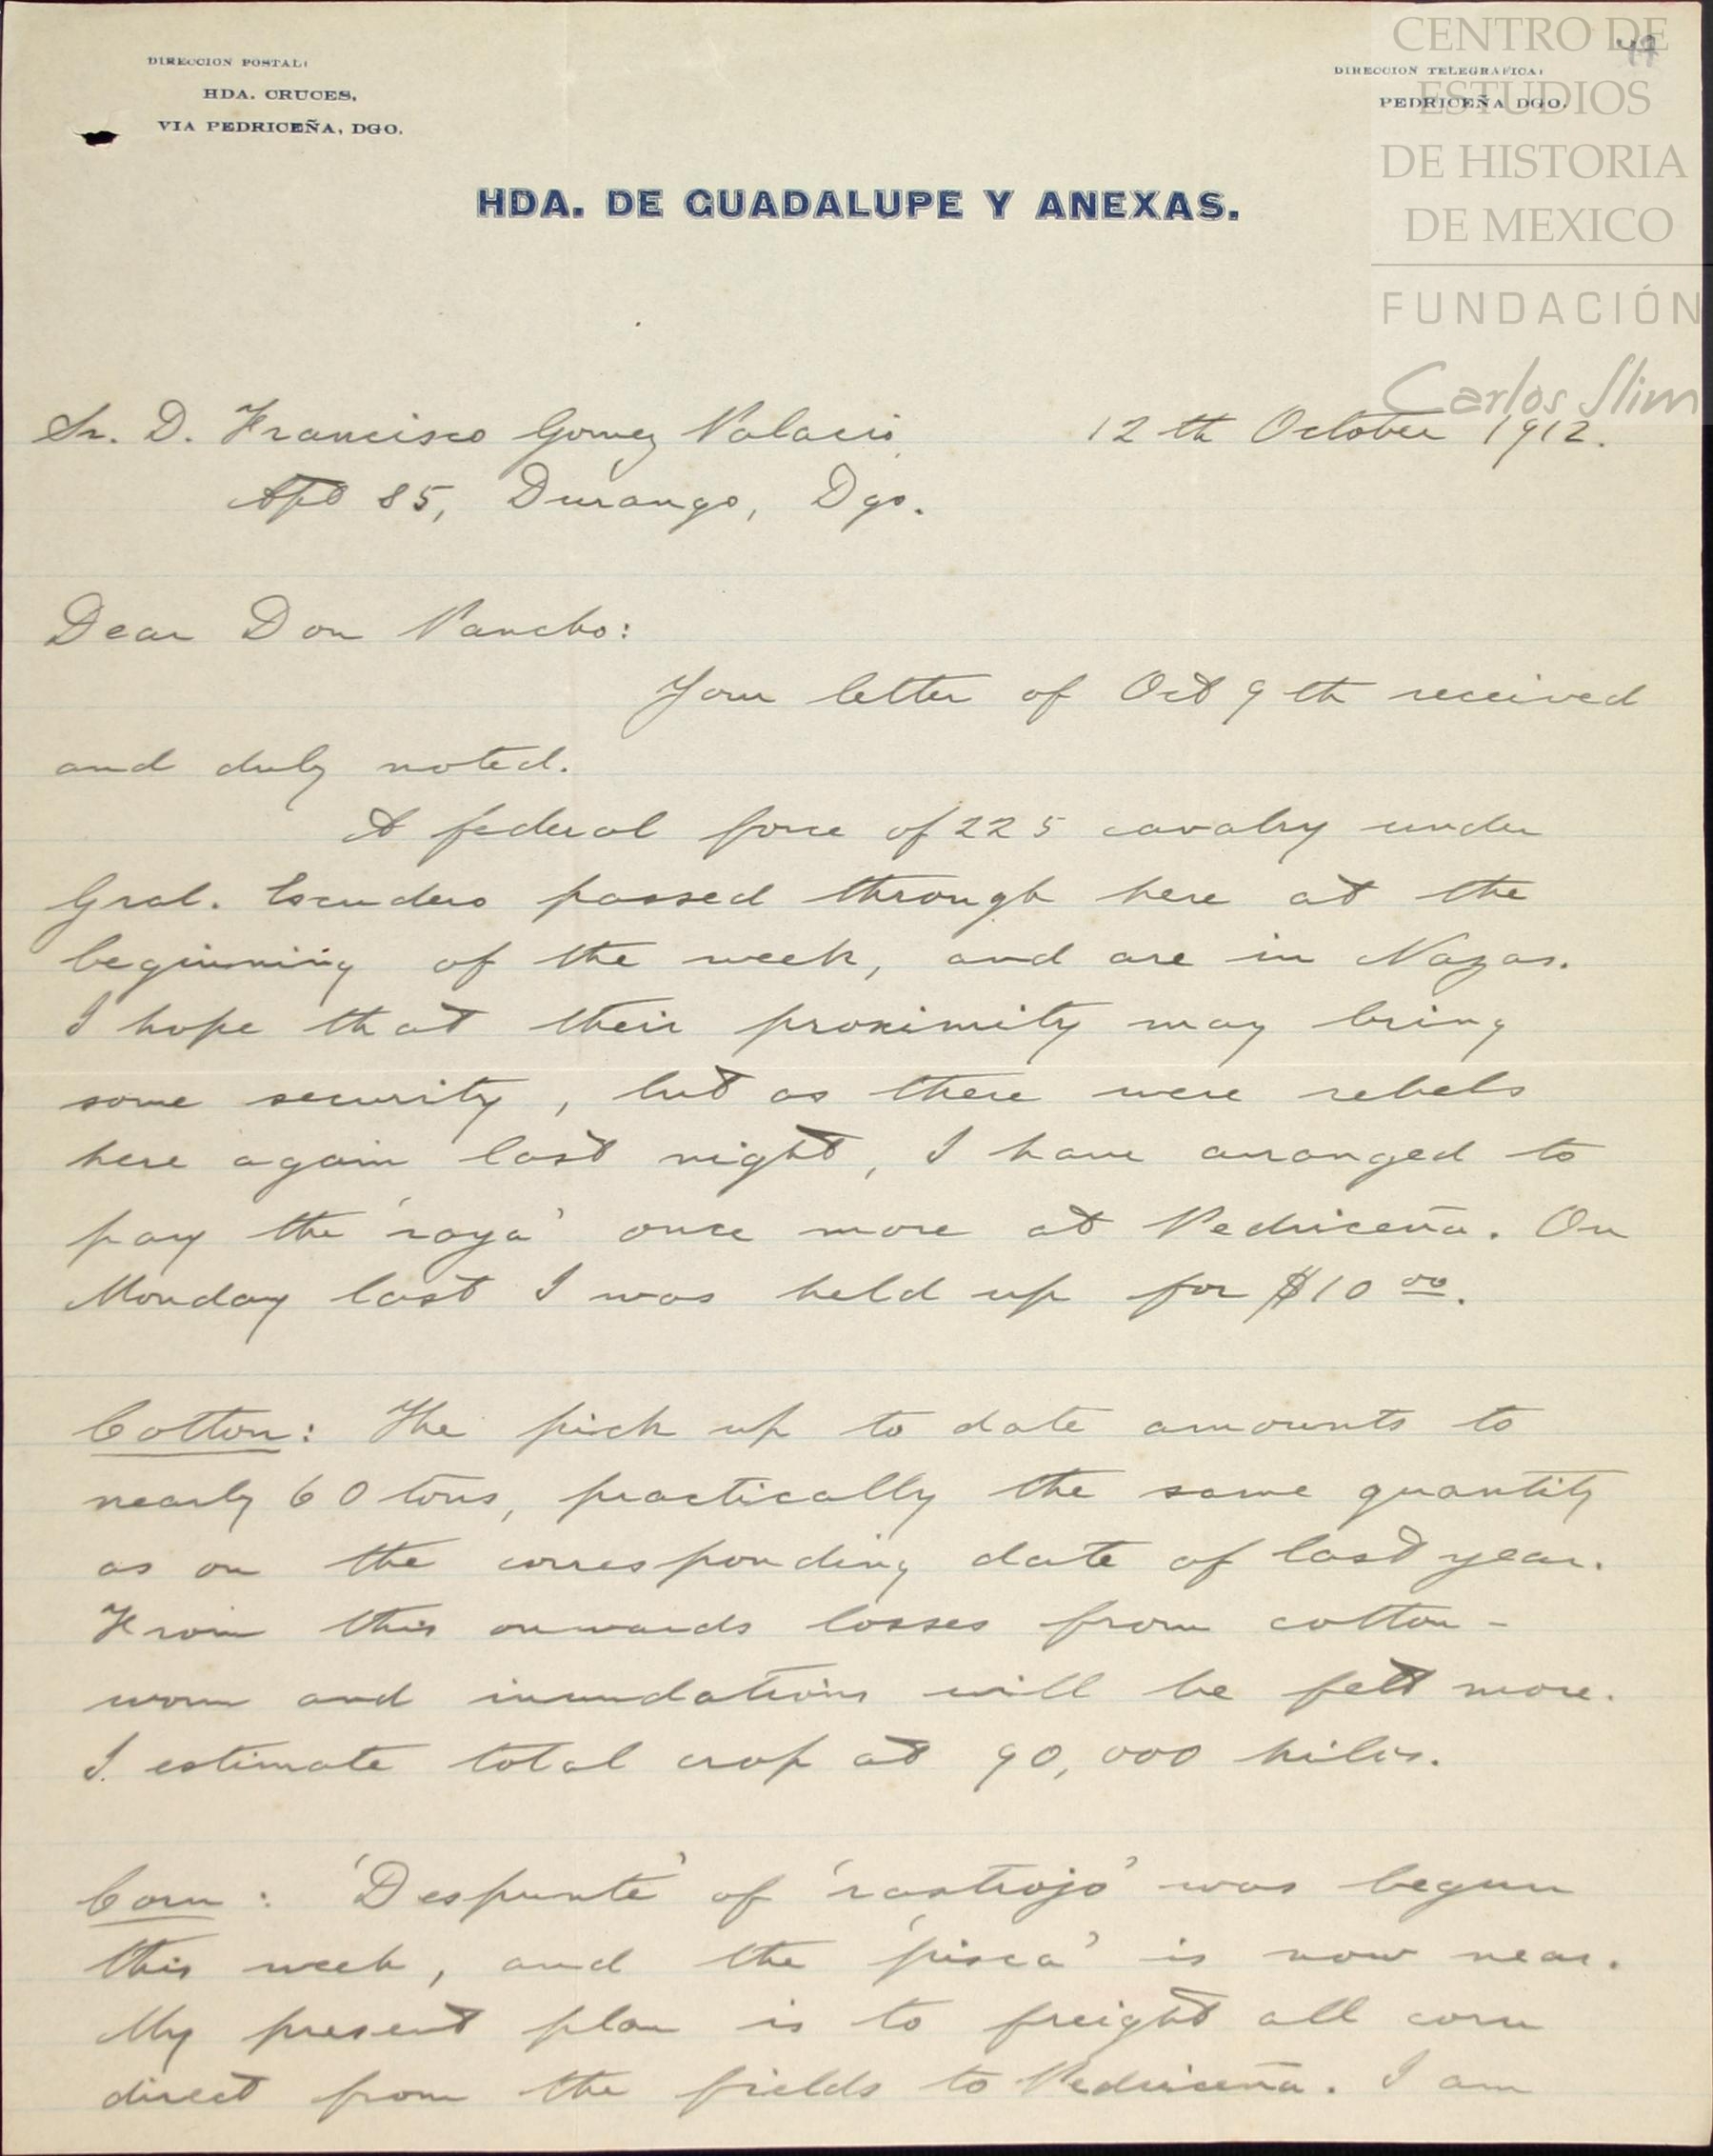 DIRECCION POSTAL:
HDA. CRUCES,
VIA PEDRICEÑA, DGO.
DIRECCION TELEGRAFICA:
PEDRICEÑA DGO.
CENTRO DE
ESTUDIOS
DE HISTORIA
DE MEXICO
FUNDACIÓN
Carlos Slim
HDA. DE GUADALUPE Y ANEXAS.
Sr. D. Francisco Gomez Palacio 12th October 1912.
Apt 85, Durango, Dgo.
Dear Don Pancho:
Your letter of Oct 9th received
and duly noted.
A federal force of 225 cavalry under
Gral. Escudero passed through here at the
beginning of the week, and are in Nazas.
I hope that their proximity may bring
some security, but as there were rebels
here again last night, I have arranged to
pay the 'raya' once more at Pedriceña. On
Monday last I was held up for $10 00.
Cotton: The pick up to date amounts to
nearly 60 tons, practically the same quantity
as on the corresponding date of last year.
From this onwards losses from cotton-
worm and inundations will be felt more.
I estimate total crop at 90,000 kilos.
Corn: 'Despunte' of 'rastrojo' was begun
this week, and the 'pisca' is now near.
My present plan is to freight all corn
direct from the fields to Pedriceña. I am